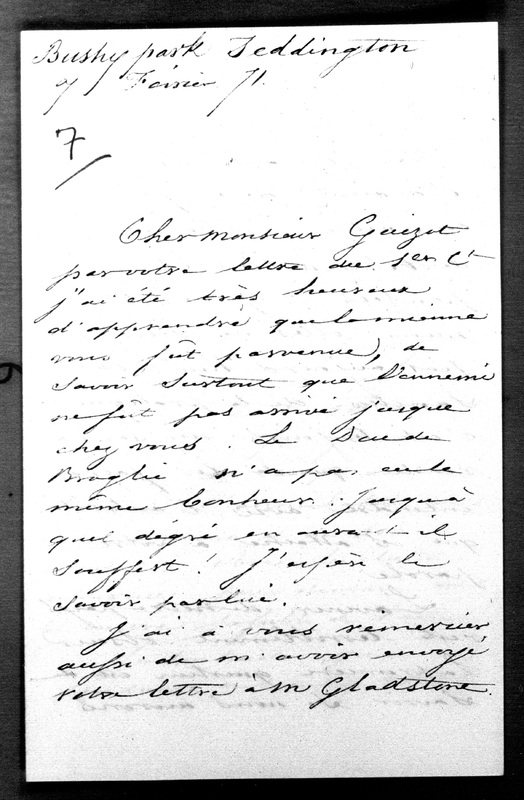 Bushy park Teddington
7 Février 71.
7
Cher monsieur Guizot
par votre lettre du 1er Ct
j'ai été très heureux
d'apprendre que la mienne
vous fût parvenue, de
savoir surtout que l'ennemi
ne fût pas arrivé jusque
chez vous. Le Duc de
Broglie n'a pas eu le
même bonheur. Jusqu'à
quel dégré en aura-t-il
souffert! J'espère le
savoir par lui.
J'ai à vous remercier
aussi de m'avoir envoyé
votre lettre à M Gladstone.